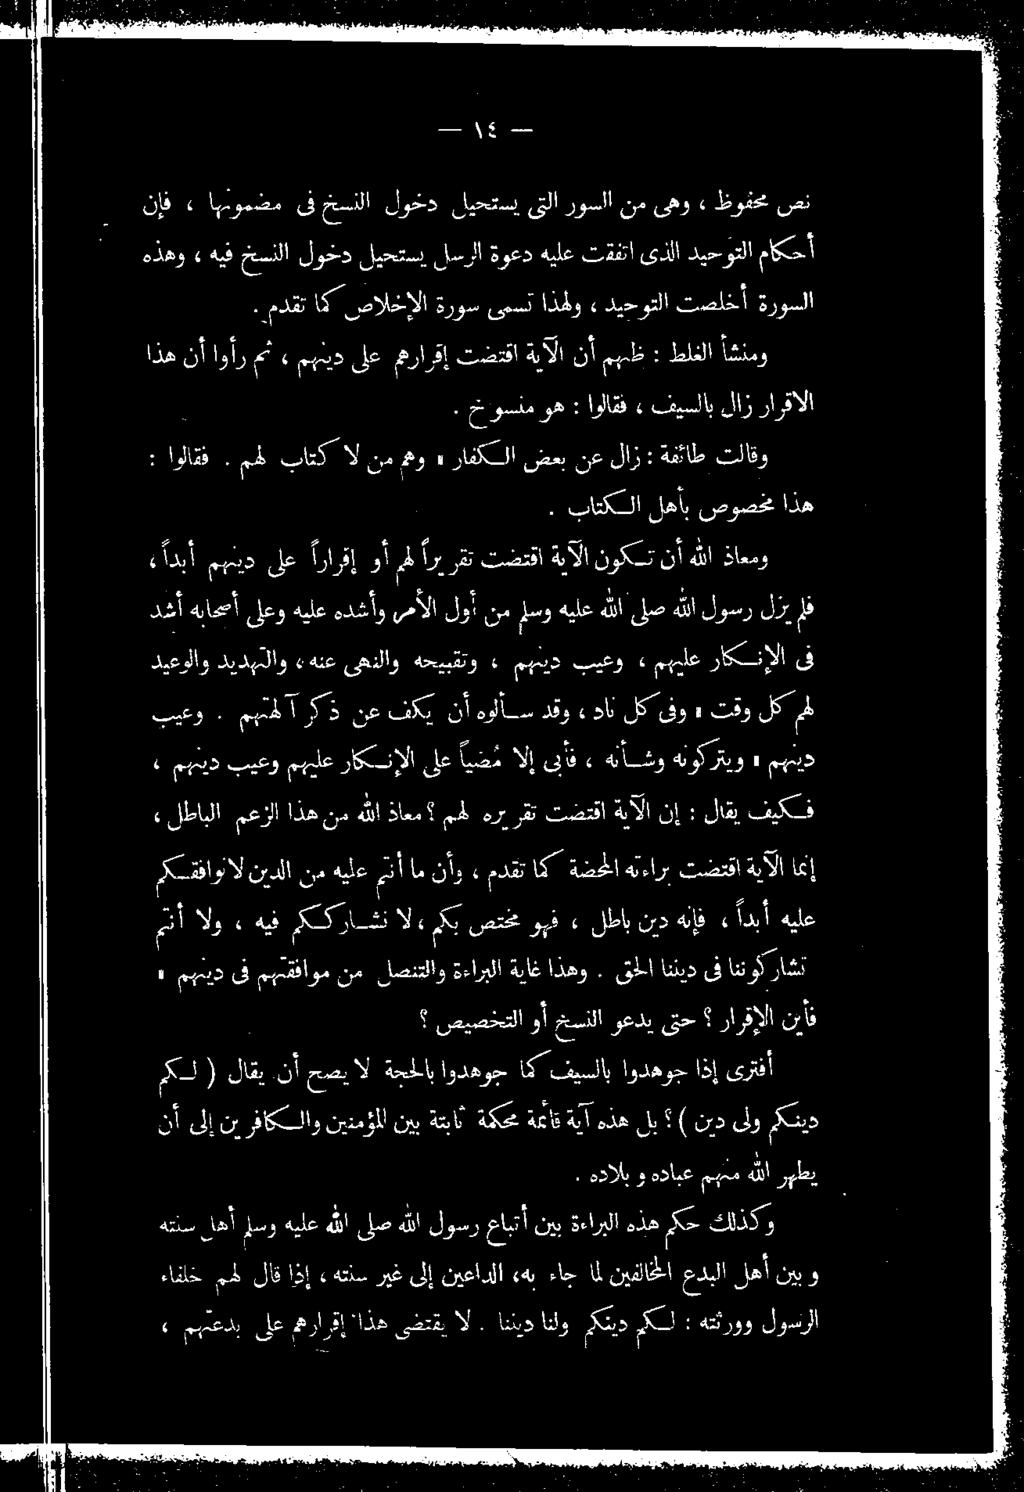 — ١٤ —
نص محفوظ ، وهى من السور التى يستحيل دخول النسخ فى مضمونها ، فإن
أحكام التوحيد الذى اتفقت عليه دعوة الرسل يستحيل دخول النسخ فيه ، وهذه
السورة أخلصت التوحيد ، ولهذا تسمى سورة الإخلاص كما تقدم .
ومنشأ الغلط : ظنهم أن الآية اقتضت إقرارهم على دينهم ، ثم رأوا أن هذا
الاقرار زال بالسيف ، فقالوا : هو منسوخ .
وقالت طائفة : زال عن بعض الكفار ، وهم من لا كتاب لهم . فقالوا :
هذا مخصوص بأهل الكتاب .
ومعاذ الله أن تكون الآية اقتضت تقريراً لهم أو إقراراً على دينهم أبداً ،
فلم يزل رسول الله صلى الله عليه وسلم من أول الأمر وأشده عليه وعلى أصحابه أشد
فى الإنكار عليهم ، وعيب دينهم ، وتقبيحه والنهى عنه ، والتهديد والوعيد
لهم كل وقت ، وفى كل ناد ، وقد سألوه أن يكف عن ذكر آلهتهم . وعيب
دينهم ، ويتركونه وشأنه ، فأبى إلا مُضياً على الإنكار عليهم وعيب دينهم ،
فكيف يقال : إن الآية اقتضت تقريره لهم ؟ معاذ الله من هذا الزعم الباطل ،
إنما الآية اقتضت براءته المحضة كما تقدم ، وأن ما أنتم عليه من الدين لانوافقكم
عليه أبداً ، فإنه دين باطل ، فهو مختص بكم ، لا نشارككم فيه ، ولا أنتم
تشاركوننا فى ديننا الحق . وهذا غاية البراءة والتنصل من موافقتهم فى دينهم ،
فأين الإقرار ؟ حتى يدعو النسخ أو التخصيص ؟
أفترى إذا جوهدوا بالسيف كما جوهدوا بالحجة لا يصح أن يقال ( لكم
دينكم ولى دين ) ؟ بل هذه آية قائمة محكمة ثابتة بين المؤمنين والكافرين إلى أن
يطهر الله منهم عباده وبلاده .
وكذلك حكم هذه البراءة بين أتباع رسول الله صلى الله عليه وسلم أهل سنته
وبين أهل البدع المخالفين لما جاء به ، الداعين إلى غير سنته ، إذا قال لهم خلفاء
الرسول وورثته : لكم دينكم ولنا ديننا . لا يقتضى هذا إقرارهم على بدعتهم ،